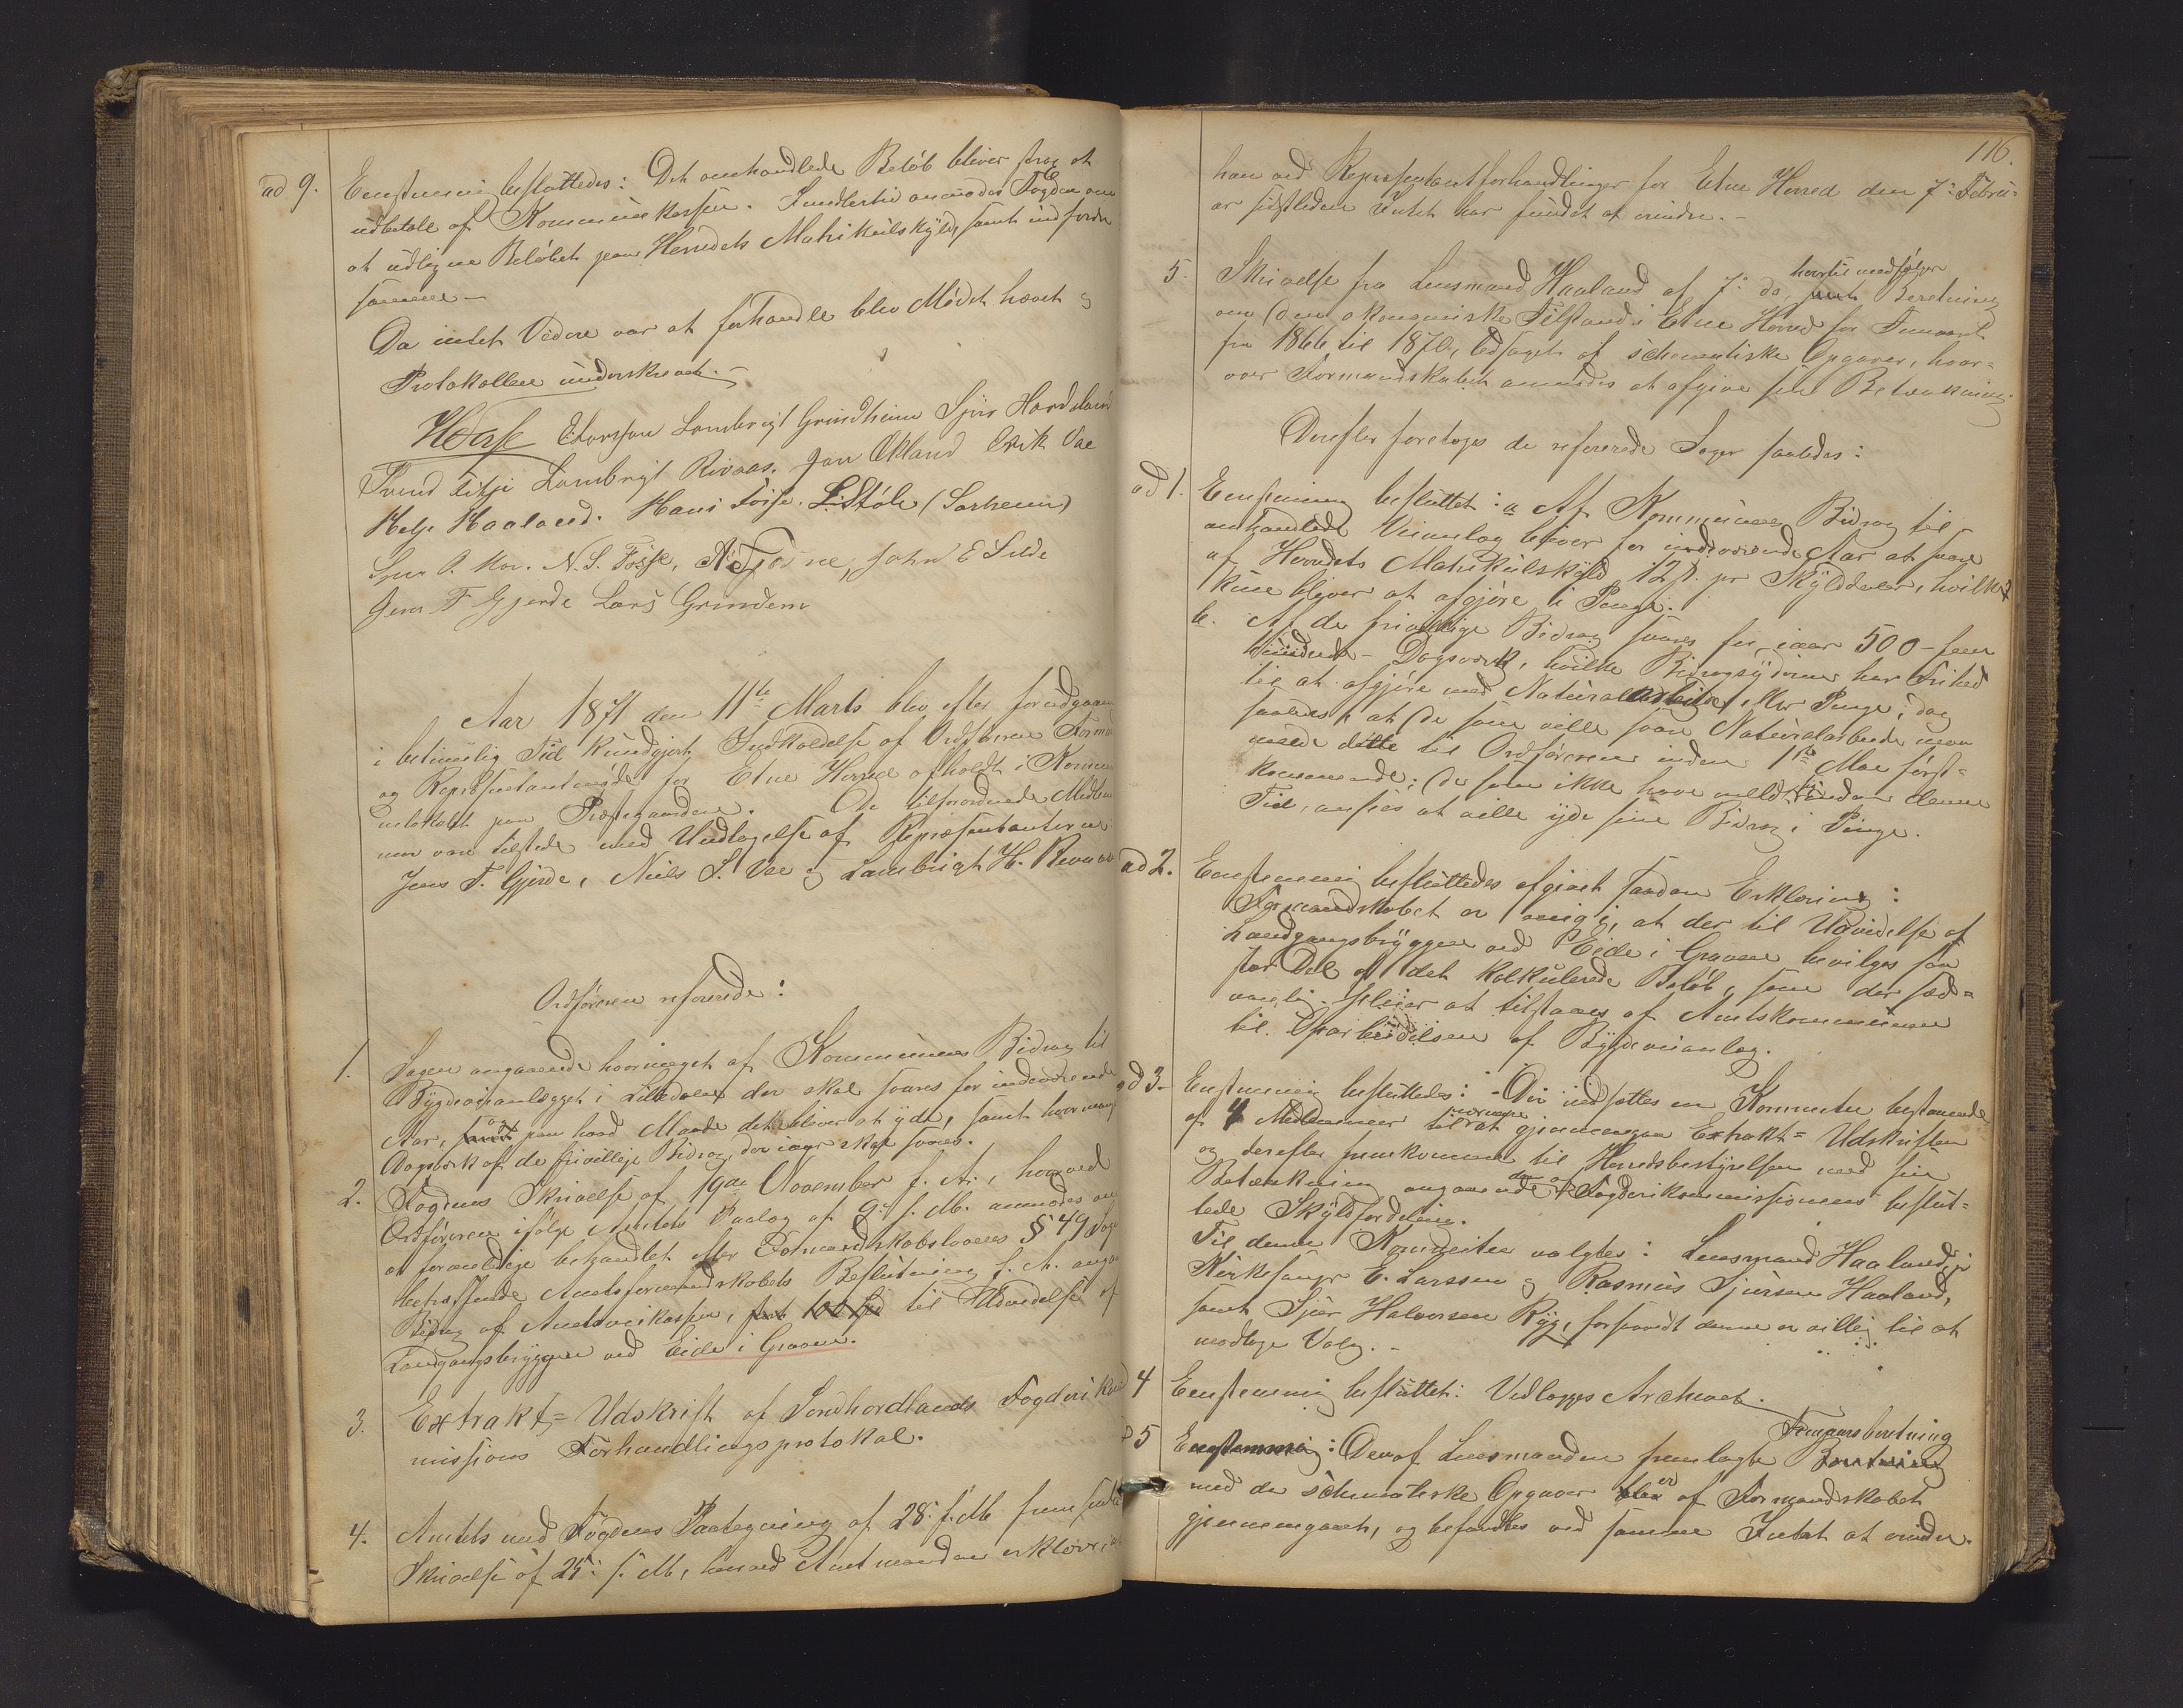 ad 9. Eenstemmig besluttedes: Det omhandlede Beløb bliver strax at
udbetale af Kommunekassen. Imidlertid anmodes Fogden om
at udligne Beløbet paa Herredets Matrikulskyld, samt indfordre
samme –
Da intet Videre var at forhandle blev Mødet hævet og
Protokollen underskrevet. –
E Larssen Lambrigt Grindheim Sjur Hardeland
Svend Litsji Lambrigt Rivaas. Jan Ekland Erik Vae
Helje Haaland. Hans Fosse. L. Støle (Sørheim)
N. S. Fosse, A. Tjøsne, John E Silde
Jens T Gjerde Lars Grindem
Aar 1871 den 11te Marts blev efter forudgaaen
i betimelig Tid kundgjort Indkaldelse af Ordføreren Formand
og Repræsentantmøde for Etne Herred afholdt i Kommu
nelokalet paa Præstegaarden. De tilforordnede Medlem
mer vare tilstede med Undtagelse af Repræsentanterne
Jens T. Gjerde, Niels S. Vae og Lambrigt H. Revaas
Ordføreren refererede:
1. Sagen angaaende hvormeget af Kommunens Bidrag til
Bygdeveianlægget i Litledalen der skal svares for indeværende
Aar, og paa hvad Maade det bliver at yde, samt hvor mange
Dagsverk af de frivillige Bidrag, der iaar skal svares.
2. Fogdens Skrivelse af 19de November f. A., hvorved
Ordføreren ifølge Amtets Paalæg af 9: s. M. anmodes om
at foranledige behandlet efter Formandskabslovens § 49 Sagen
betræffende Amtsformandskabets Beslutning f. A. angaa
Bidrag af Amtsveikassen, til Udvidelse af
Landgangsbryggen ved Eide i Graven.
3. Extrakt-Udskrift af Søndhordlands Fogderikom
missions Forhandlingsprotokol.
4. Amtets med Fogdens Paategning af 28: f. M. fremsendte
Skrivelse af 25: s. M., hvorved Amtmanden erklærer, at
116.
han ved Repræsentantforhandlinger for Etne Herred den 7: Febru-
ar sidstleden Intet har fundet at erindre. –
5. Skrivelse fra Lensmand Haaland af 7: ds. hvortil medfølger Beretning
om den økonomiske Tilstand i Etne Herred for Femaaret
fra 1866 til 1870, ledsaget af schematiske Opgaver, hvor-
over Formandskabet anmodes at afgive sin Betænkning.
Derefter foretoges de refererede Sager saaledes:
ad 1. Eenstemmig besluttet: a Af Kommunens Bidrag til
omhandlede Veianlæg bliver for indeværende Aar at svare
af Herredets Matrikulskyld 12 s. pr Skylddaler, hvilke
kun bliver at afgjøre i Penge.
b. Af de frivillige Bidrag svares for iaar 500 – fem
hundrede – Dagsverk, hvilke Bidragsyderne har Frihed
til at afgjøre med Naturalarbeide eller Penge; dog
saaledes, at de som ville svare Naturalarbeide maa
melde dette til Ordføreren inden 1ste Mai først-
kommende; de som ikke have meldt sig inden denne
Tid, ansees at ville yde sine Bidrag i Penge.
ad 2. Eenstemmig besluttedes afgivet saadan Erklæring:
Formandskabet er enig i, at der til Udvidelse af
Landgangsbryggen ved Eide i Graven bevilges saa
stor Del af det kalkulerede Beløb, som der sæd-
vanlig pleier at tilstaaes af Amtskommunen
til Oparbeidelsen af Bygdeveianlæg.
ad 3. Eenstemmig besluttedes: – Der nedsættes en Komitee bestaaende
af 4 Medlemmer til nærmere at gjennemgaa Extrakt-Udskriften
og derefter fremkomme til Herredsbestyrelsen med sin
Betænkning angaaende den af Fogderikommissionens beslut-
tede Skyldfordeling.
Til denne Komitee valgtes: Lensmand Haaland,
Kirkesanger E. Larssen og Rasmus Sjursen Haaland,
samt Sjur Halvorsen Ryg, forsaavidt denne er villig til at
modtage Valg. –
4 Eenstemmig besluttet: Vedlægges Archivet.
5 Eenstemmig: Den af Lensmanden fremlagte Femaarsberetning
med de schematiske Opgaver er af Formandskabet
gjennemgaaet, og befandtes ved samme Intet at erindre.